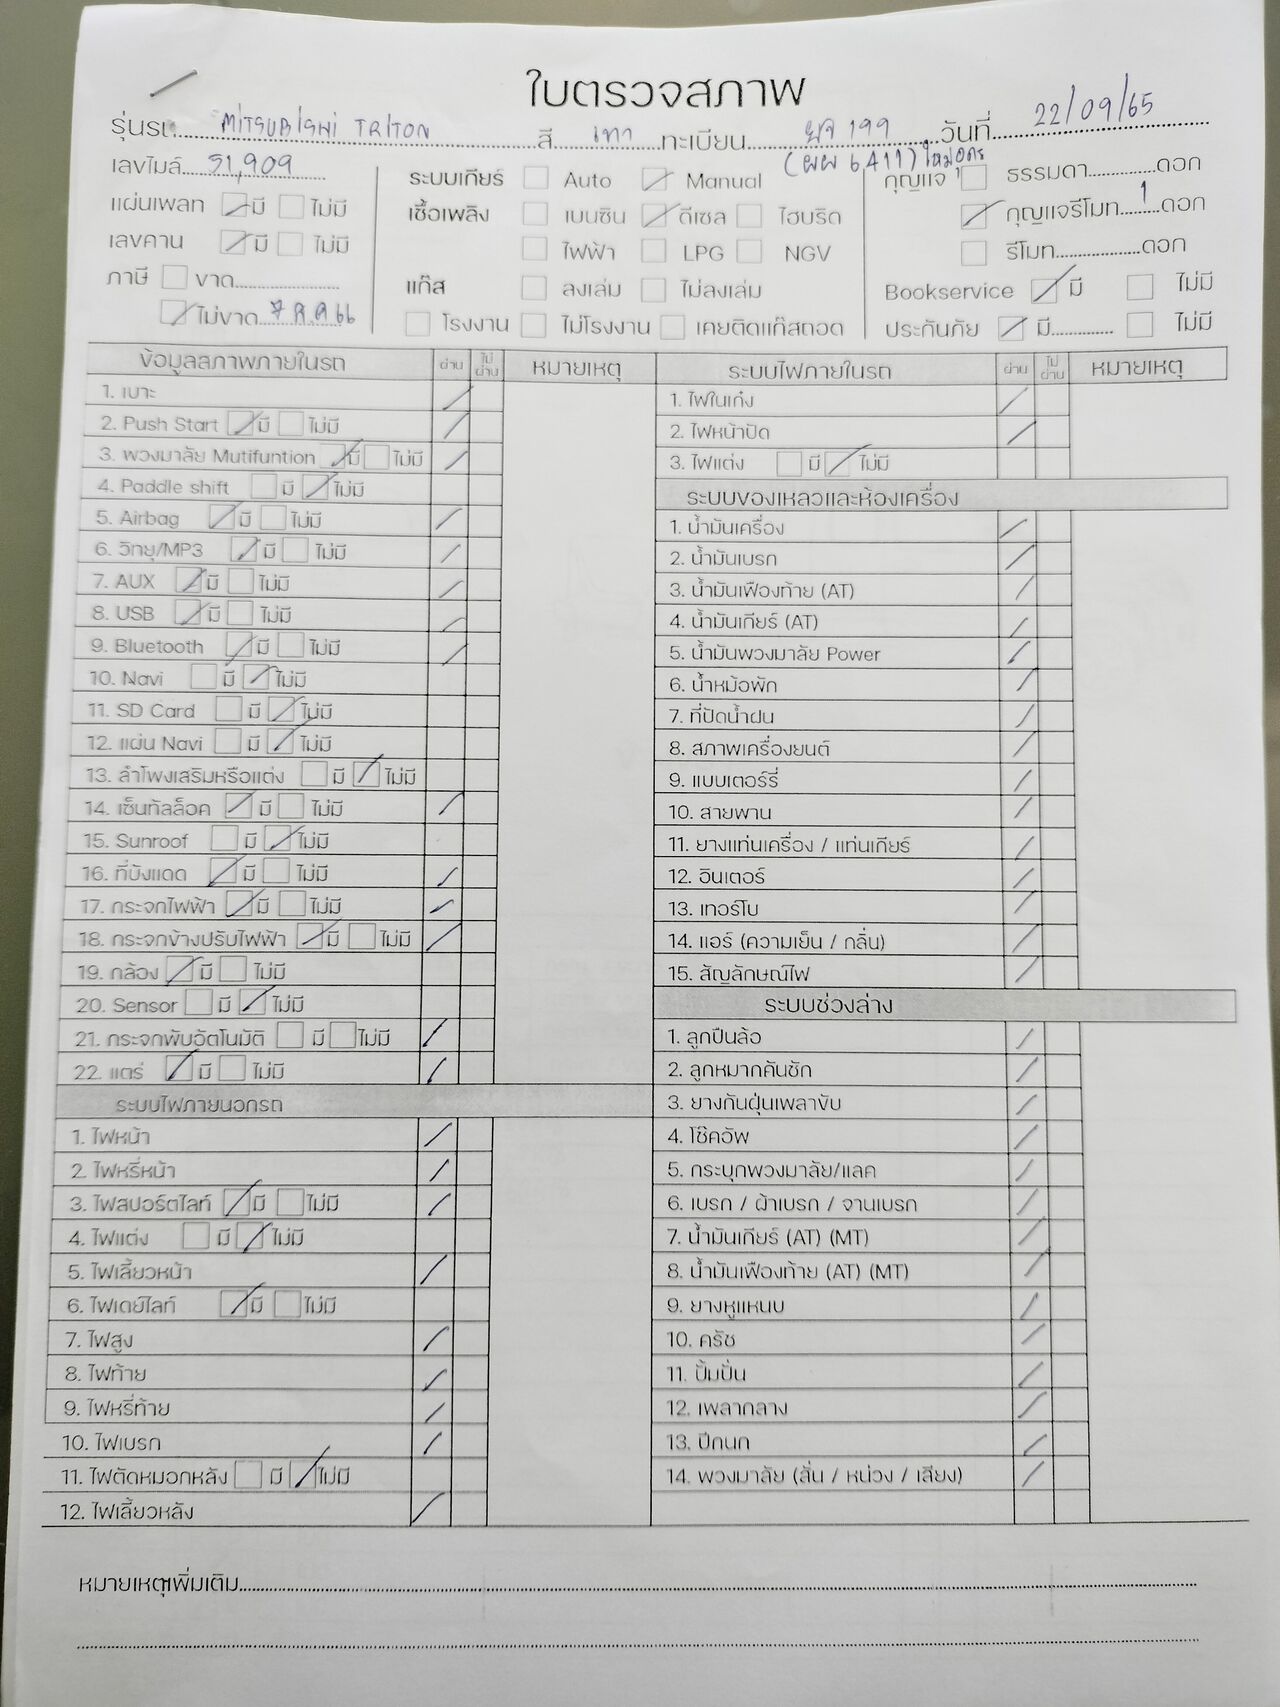 ใบตรวจสภาพ
รุ่นรถ MITSUBISHI TRITON สี เทา ทะเบียน ยจ 199 วันที่ 22/09/65
(ผผ 6411)
เลขไมล์ 51,909
แผ่นเพลท มี ไม่มี
เลขคาน มี ไม่มี
ภาษี ขาด
ไม่ขาด
ระบบเกียร์ Auto Manual
เชื้อเพลิง เบนซิน ดีเซล ไฮบริด
ไฟฟ้า LPG NGV
แก๊ส ลงเล่ม ไม่ลงเล่ม
โรงงาน ไม่โรงงาน เคยติดแก๊สถอด
กุญแจ ธรรมดา ดอก
กุญแจรีโมท 1 ดอก
รีโมท ดอก
Bookservice มี ไม่มี
ประกันภัย มี ไม่มี
ข้อมูลสภาพภายในรถ ผ่าน ไม่ผ่าน หมายเหตุ
1. เบาะ
2. Push Start มี ไม่มี
3. พวงมาลัย Mutifuntion มี ไม่มี
4. Paddle shift มี ไม่มี
5. Airbag มี ไม่มี
6. วิทยุ/MP3 มี ไม่มี
7. AUX มี ไม่มี
8. USB มี ไม่มี
9. Bluetooth มี ไม่มี
10. Navi มี ไม่มี
11. SD Card มี ไม่มี
12. แผ่น Navi มี ไม่มี
13. ลำโพงเสริมหรือแต่ง มี ไม่มี
14. เซ็นทัลล็อค มี ไม่มี
15. Sunroof มี ไม่มี
16. ที่บังแดด มี ไม่มี
17. กระจกไฟฟ้า มี ไม่มี
18. กระจกข้างปรับไฟฟ้า มี ไม่มี
19. กล้อง มี ไม่มี
20. Sensor มี ไม่มี
21. กระจกพับอัตโนมัติ มี ไม่มี
22. แตร มี ไม่มี
ระบบไฟภายนอกรถ
1. ไฟหน้า
2. ไฟหรี่หน้า
3. ไฟสปอร์ตไลท์ มี ไม่มี
4. ไฟแต่ง มี ไม่มี
5. ไฟเลี้ยวหน้า
6. ไฟเดย์ไลท์ มี ไม่มี
7. ไฟสูง
8. ไฟท้าย
9. ไฟหรี่ท้าย
10. ไฟเบรก
11. ไฟตัดหมอกหลัง มี ไม่มี
12. ไฟเลี้ยวหลัง
ระบบไฟภายในรถ ผ่าน ไม่ผ่าน หมายเหตุ
1. ไฟในเก๋ง
2. ไฟหน้าปัด
3. ไฟแต่ง มี ไม่มี
ระบบของเหลวและห้องเครื่อง
1. น้ำมันเครื่อง
2. น้ำมันเบรก
3. น้ำมันเฟืองท้าย (AT)
4. น้ำมันเกียร์ (AT)
5. น้ำมันพวงมาลัย Power
6. น้ำหม้อพัก
7. ที่ปัดน้ำฝน
8. สภาพเครื่องยนต์
9. แบบเตอร์รี่
10. สายพาน
11. ยางแท่นเครื่อง / แท่นเกียร์
12. อินเตอร์
13. เทอร์โบ
14. แอร์ (ความเย็น / กลิ่น)
15. สัญลักษณ์ไฟ
ระบบช่วงล่าง
1. ลูกปืนล้อ
2. ลูกหมากคันชัก
3. ยางกันฝุ่นเพลาขับ
4. โช๊คอัพ
5. กระบุกพวงมาลัย/แลค
6. เบรก / ผ้าเบรก / จานเบรก
7. น้ำมันเกียร์ (AT) (MT)
8. น้ำมันเฟืองท้าย (AT) (MT)
9. ยางหูแหนบ
10. ครัช
11. ปั้มปั่น
12. เพลากลาง
13. ปีกนก
14. พวงมาลัย (สั่น / หน่วง / เสียง)
หมายเหตุเพิ่มเติม